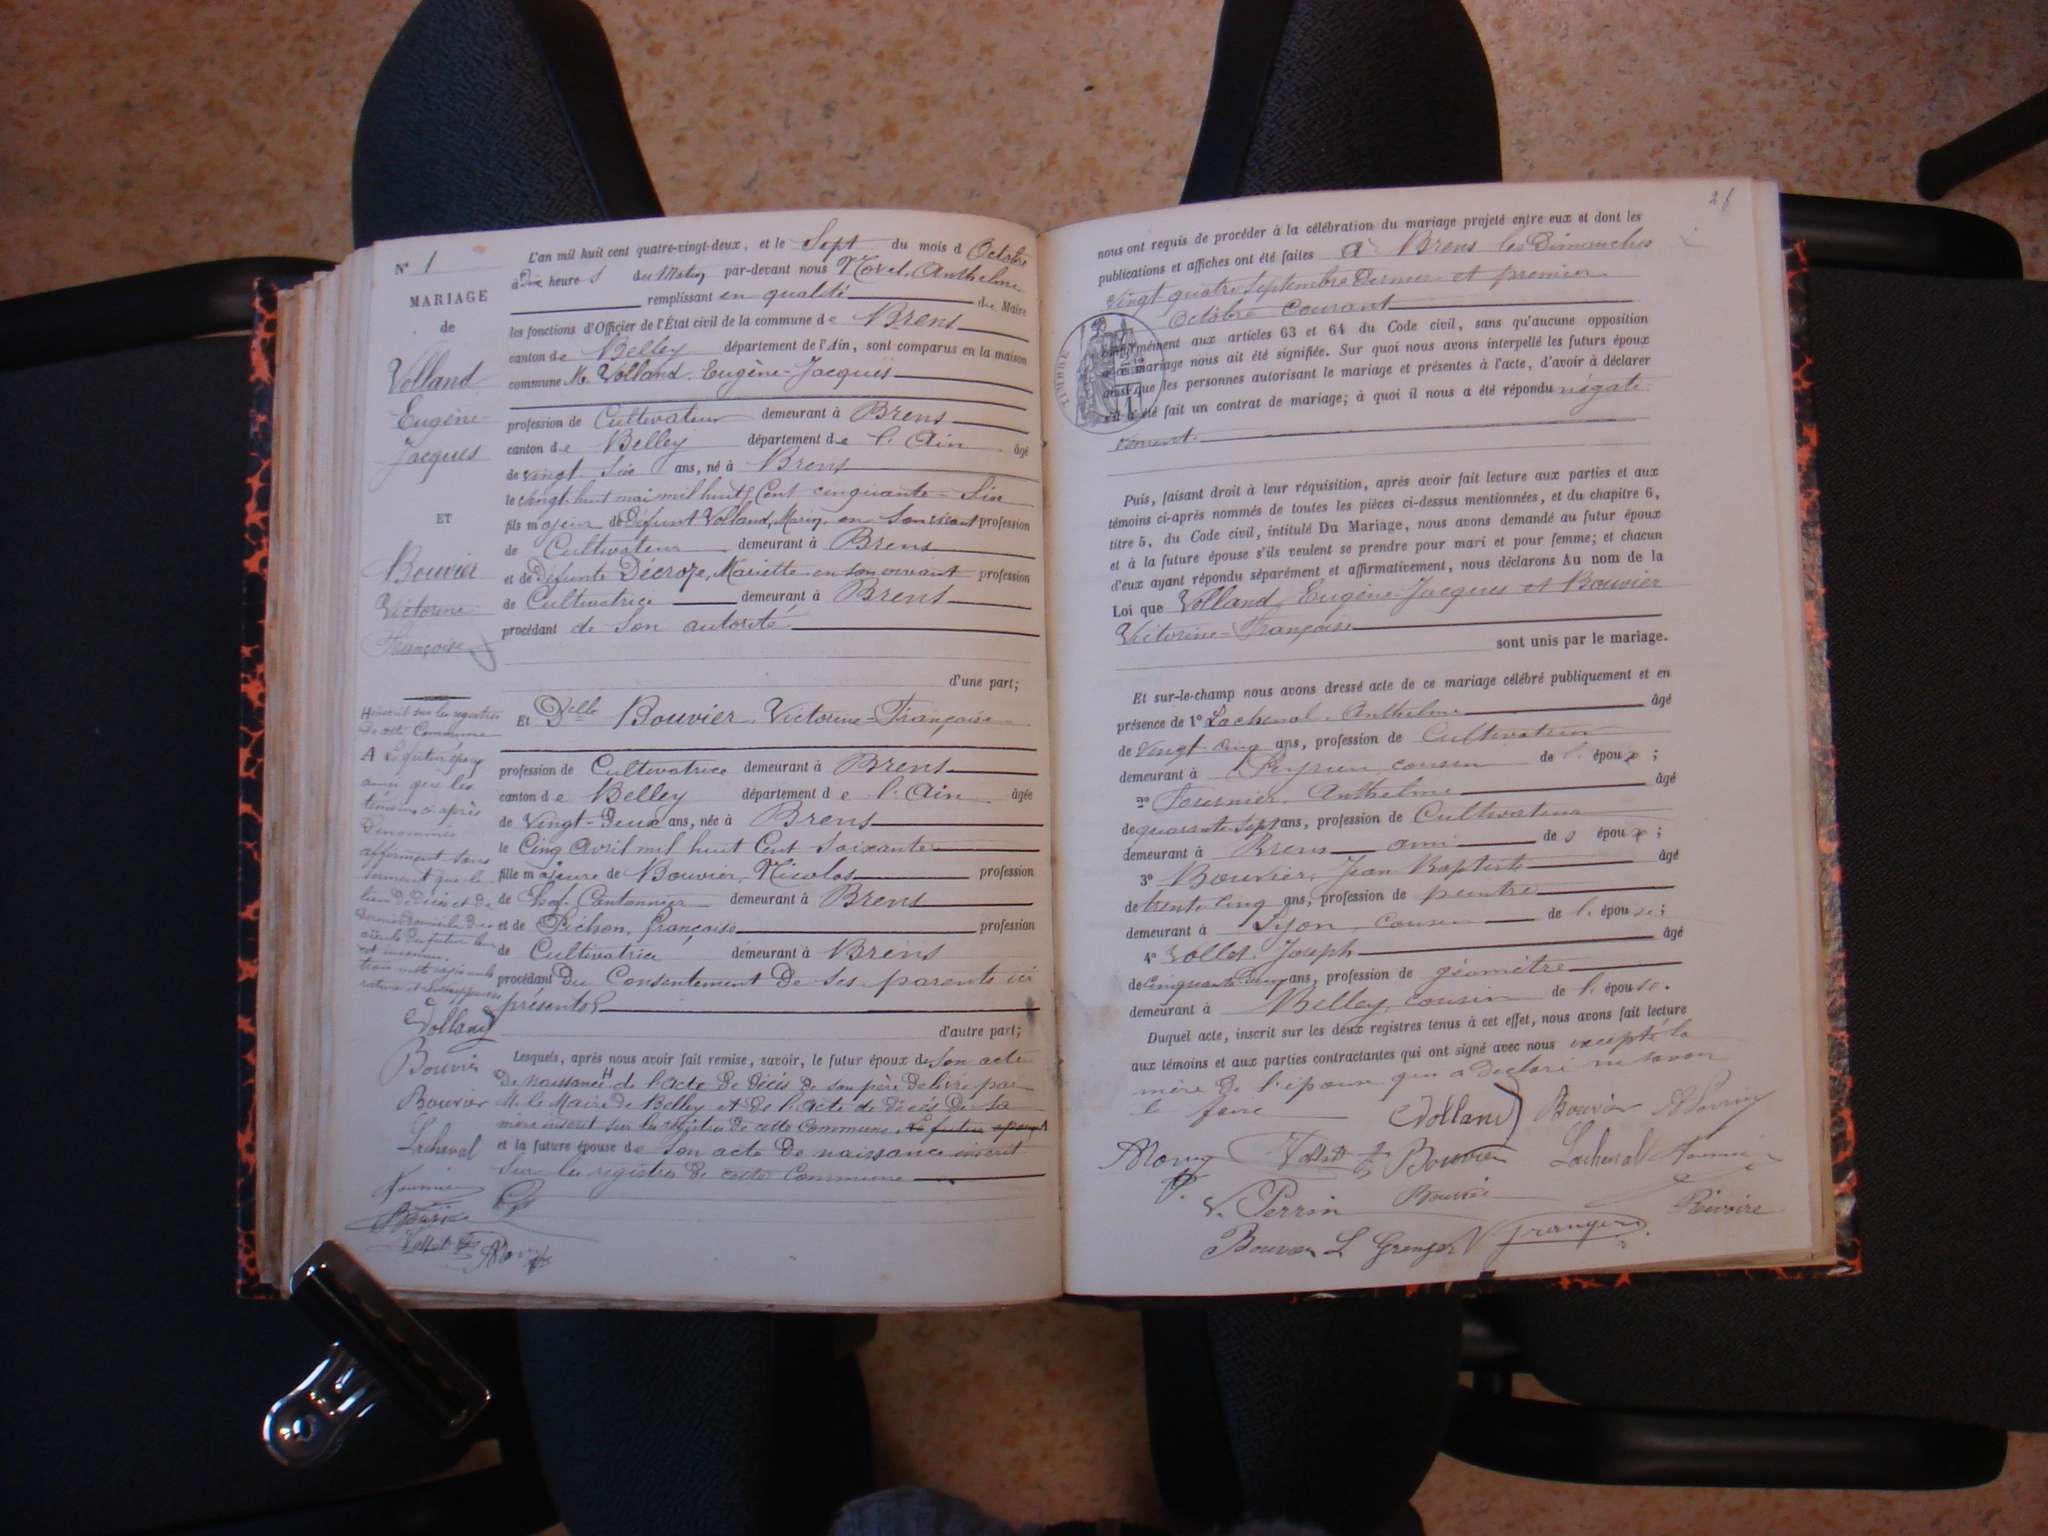 N° 1
MARIAGE
de
Volland
Eugène-
Jacques
ET
Bouvier
Victorine
Françoise
H inscrit sur les registres
de cette Commune
A Le futur époux
ainsi que les
témoins ci-après
dénommés
affirment sous
serment que le
lieu de décès et de
dernier domicile des
aïeuls du futur leur
est inconnu.
Volland
Bouvier
Bouvier
Lacheval
Fournier
Bouvier
L'an mil huit cent quatre-vingt-deux, et le Sept du mois d Octobre
à Dix heure s du Matin par-devant nous Anthelme
remplissant en qualité de Maire
les fonctions d'Officier de l'État civil de la commune de Brens
canton de Belley département de l'Ain, sont comparus en la maison
commune M. Volland, Eugène-Jacques
profession de Cultivateur demeurant à Brens
canton de Belley département de l'Ain âgé
de vingt-Six ans, né à Brens
le vingt-huit mai mil huit Cent cinquante-Six
fils majeur de Défunt Volland, en Son vivant profession
de Cultivateur demeurant à Brens
et de Défunte Décroze, Mariette en son vivant profession
de Cultivatrice demeurant à Brens
procédant de Son autorité
d'une part;
Et Delle Bouvier, Victorine-Françoise
profession de Cultivatrice demeurant à Brens
canton de Belley département de l'Ain âgée
de Vingt-Deux ans, née à Brens
le Cinq Avril mil huit Cent Soixante
fille majeure de Bouvier, Nicolas profession
de Chef Cantonnier demeurant à Brens
et de Pichon, françoise profession
de Cultivatrice demeurant à Brens
procédant Du Consentement De Ses parents ici
présents
d'autre part;
Lesquels, après nous avoir fait remise, savoir, le futur époux de Son acte
De naissance H de l'acte De décès de son père Délivré par
M. le Maire de Belley et De l'acte de décès De Sa
mère inscrit sur les registres de cette Commune. Le futur époux A
et la future épouse de Son acte De naissance inscrit
Sur les registres de cette Commune
nous ont requis de procéder à la célébration du mariage projeté entre eux et dont les
publications et affiches ont été faites à Brens les Dimanches
Vingt quatre Septembre Dernier et premier
Octobre courant
TIMBRE
conformément aux articles 63 et 64 du Code civil, sans qu'aucune opposition
à ce mariage nous ait été signifiée. Sur quoi nous avons interpellé les futurs époux
ainsi que les personnes autorisant le mariage et présentes à l'acte, d'avoir à déclarer
s'il a été fait un contrat de mariage; à quoi il nous a été répondu négati-
vement.
Puis, faisant droit à leur réquisition, après avoir fait lecture aux parties et aux
témoins ci-après nommés de toutes les pièces ci-dessus mentionnées, et du chapitre 6,
titre 5, du Code civil, intitulé Du Mariage, nous avons demandé au futur époux
et à la future épouse s'ils veulent se prendre pour mari et pour femme; et chacun
d'eux ayant répondu séparément et affirmativement, nous déclarons Au nom de la
Loi que Volland, Eugène-Jacques et Bouvier
Victorine-Françoise
sont unis par le mariage.
Et sur-le-champ nous avons dressé acte de ce mariage célébré publiquement et en
présence de 1° Lacheval, Anthelme âgé
de vingt-cinq ans, profession de Cultivateur
demeurant à Peyrieu, cousin de l'époux;
2° Fournier, Anthelme âgé
de quarante Sept ans, profession de Cultivateur
demeurant à Brens ami de s époux;
3° Bouvier, Jean Baptiste âgé
de trente cinq ans, profession de peintre
demeurant à Lyon, cousin de l'épouse;
4° Vollet, Joseph âgé
de ans, profession de géomètre
demeurant à Belley, cousin de l'épouse.
Duquel acte, inscrit sur les deux registres tenus à cet effet, nous avons fait lecture
aux témoins et aux parties contractantes qui ont signé avec nous excepté la
mère De l'épouse qui a Déclaré ne savoir
le faire
Volland Bouvier
Vollet Bouvier Lacheval Fournier
V. Perrin Bouvier Rivoire
Bouvier L Granger V Granger